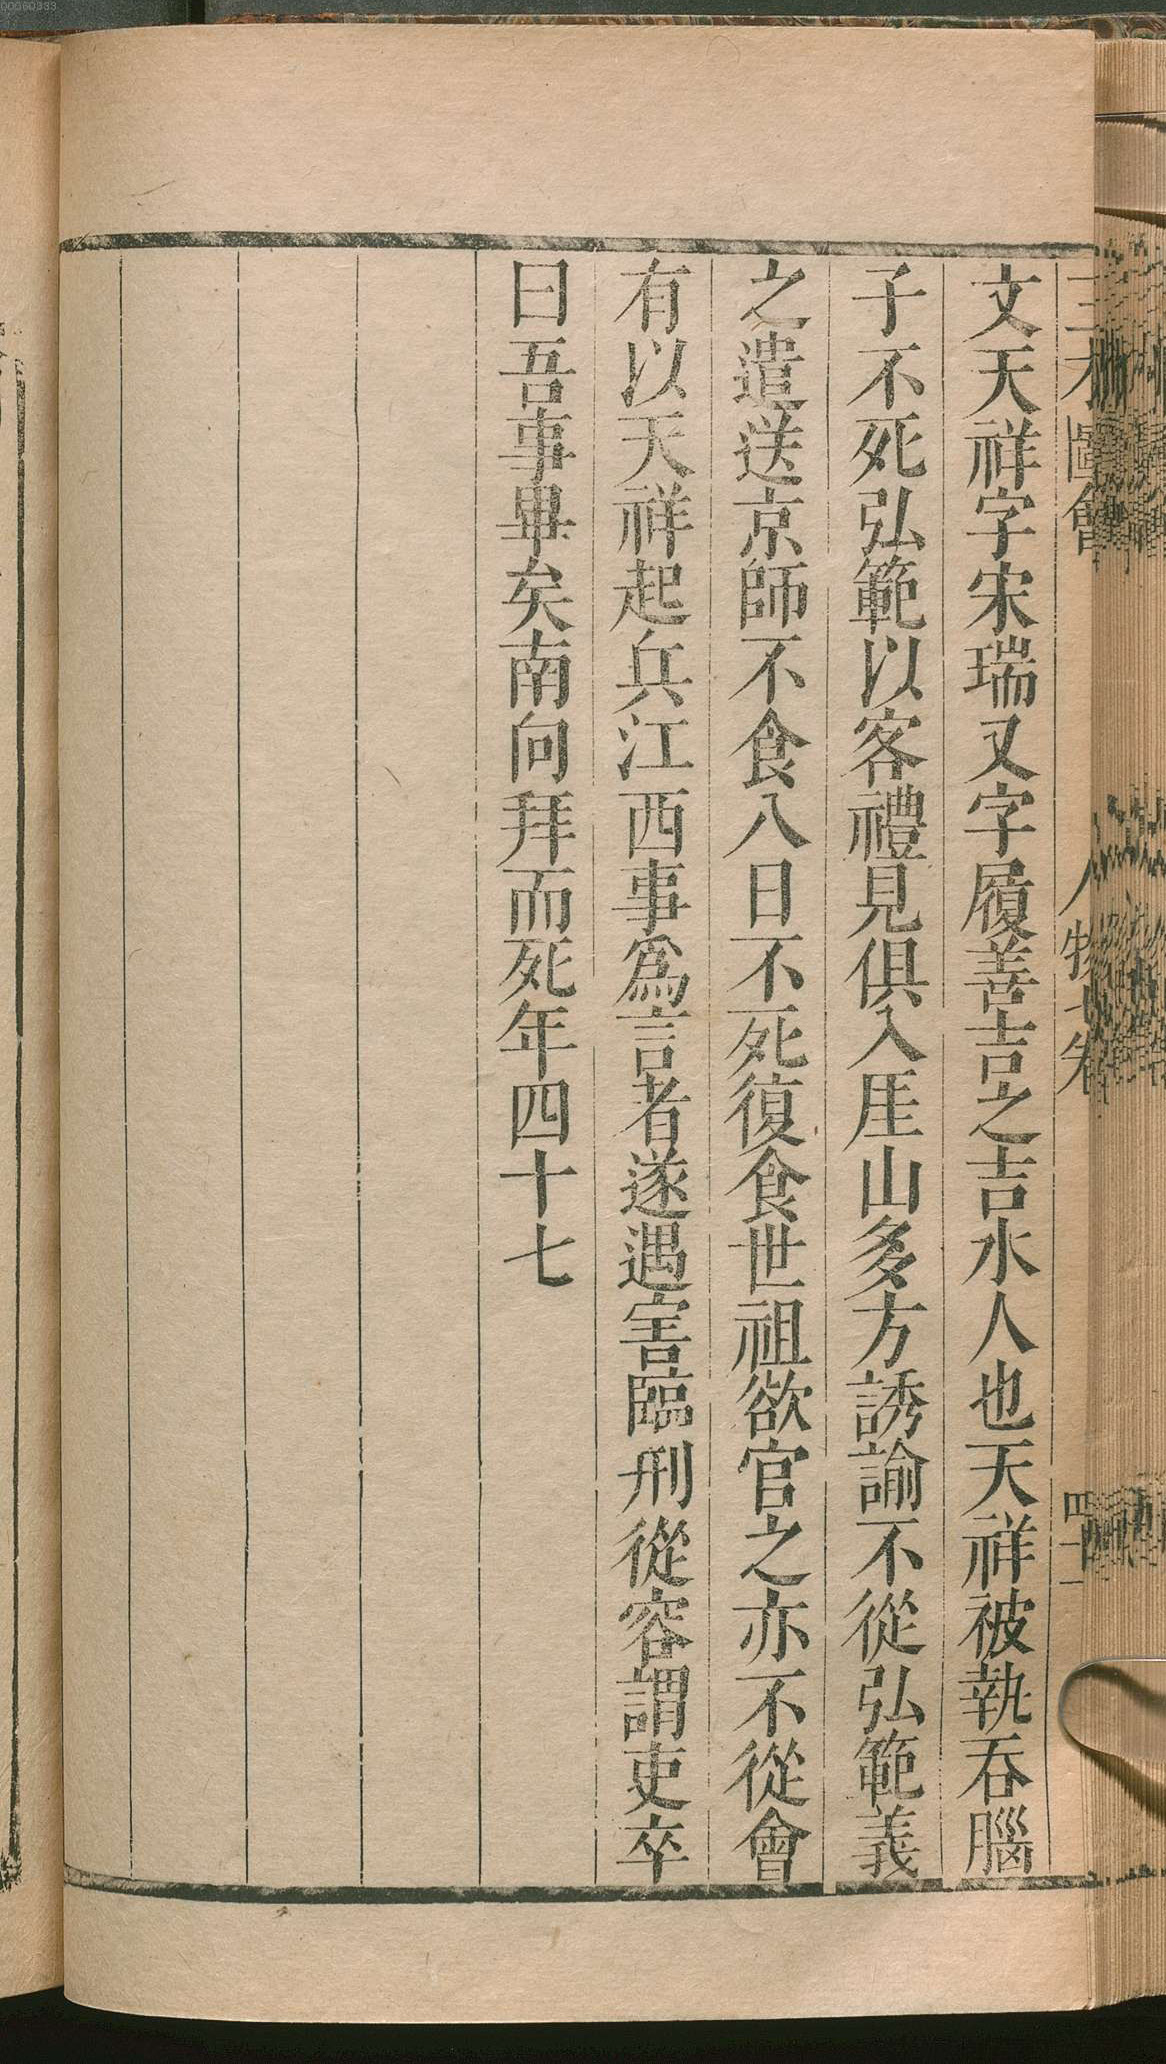 00060383
三才圖會 人物七卷 四十二
文天祥字宋瑞又字履善吉之吉水人也天祥被執吞腦
子不死弘範以客禮見俱入厓山多方誘諭不從弘範義
之遣送京師不食八日不死復食世祖欲官之亦不從會
有以天祥起兵江西事爲言者遂遇害臨刑從容謂吏卒
曰吾事畢矣南向拜而死年四十七